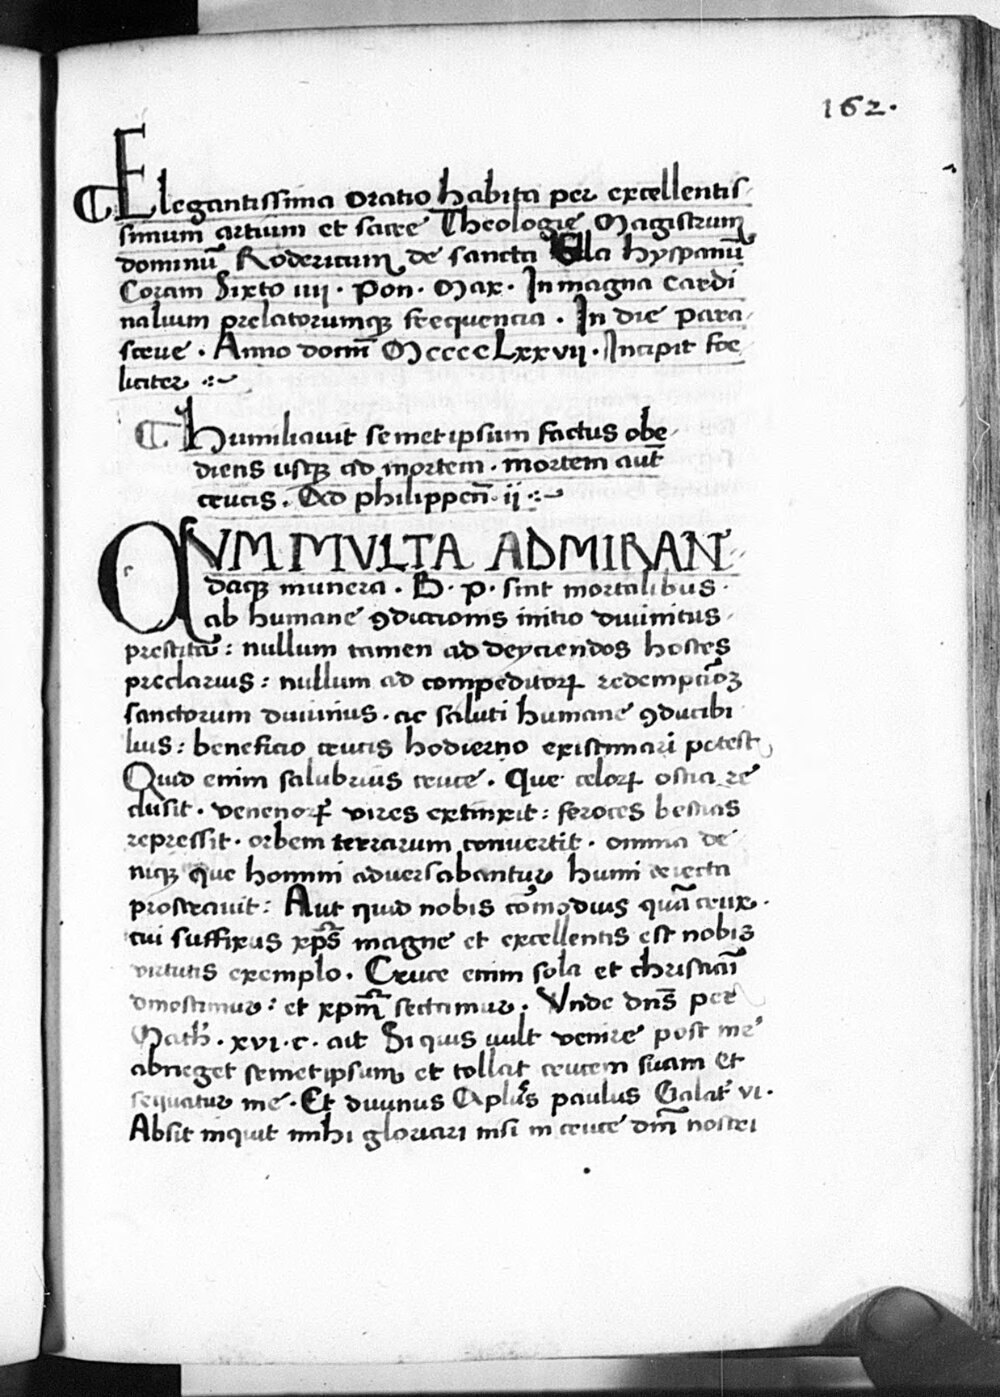 162.
Elegantissima oratio habita per excellentis-
simum artium et sacre Theologie Magistrum
dominũ Rodericum de sancta Ella hyspanũ
Coram Sixto iiij. Pon. Max. In magna cardi
nalium prelatorumqꝫ frequencia. In die para-
sceue. Anno domĩ MccccLxxvij. Incipit foe
liciter
Humiliauit semetipsum factus obe-
diens usqꝫ ad mortem. mortem aut̃
crucis. Ad philippeñ. ij
QVM MVLTA ADMIRAN-
daqꝫ munera. B. p. sint mortalibus.
ab humane ꝯdicionis initio diuinitus
prestita: nullum tamen ad deyciendos hostes
preclarius: nullum ad compeditorꝝ redempcõꝫ
sanctorum diuinius. ac saluti humane ꝯducibi
lius: beneficio crucis hodierno existimari potest
Quid enim salubrius cruce. Que celorꝝ ostia re
clusit. venenorꝝ vires extinxit: feroces bestias
repressit. orbem terrarum conuertit. omnia de
niqꝫ que homini aduersabantur humi deiecta
prostrauit: Aut quid nobis cõmodius quã crux.
cui suffixus xp̃s magne et excellentis est nobis
virtutis exemplo. Cruce enim sola et christiani
dinoscimur: et xpm̃ sectamur. Vnde dñs per
Math. xvi. c. ait Si quis uult venire post me
abneget semetipsum et tollat crucem suam et
sequatur me. Et diuinus Apl̃us paulus Galat̃ vi.
Absit inquit mihi gloriari nisi in cruce dñi nostri